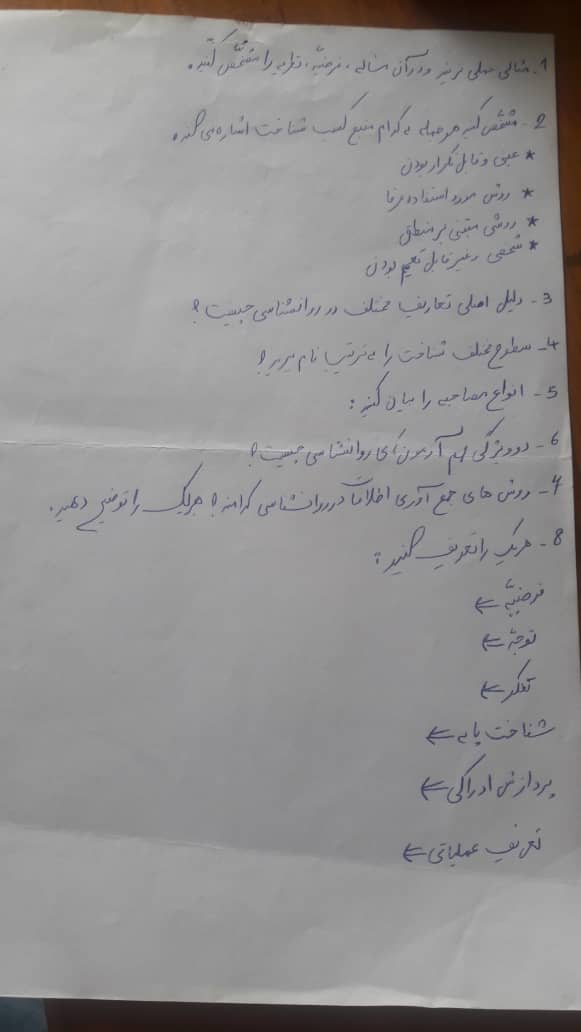 1- مثالی عملی بزنید و در آن مساله، فرضیه، نظریه را مشخص کنید.
2- مشخص کنید هر جمله به کدام منبع کسب شناخت اشاره می کند.
* عینی و قابل تکرار بودن
* روش مورد استفاده عرفا
* روشی مبتنی بر منطق
* شخصی و غیر قابل تعمیم بودن
3- دلیل اصلی تعاریف مختلف در روانشناسی چیست؟
4- سطوح مختلف شناخت را به ترتیب نام ببرید؟
5- انواع مصاحبه را بیان کنید:
6- دو ویژگی مهم آزمون های روانشناسی چیست؟
7- روش های جمع آوری اطلاعات در روانشناسی کدامند؟ هریک را توضیح دهید.
8- هریک را تعریف کنید:
فرضیه ←
توجه ←
تفکر ←
شناخت پایه ←
پردازش ادراکی ←
تعریف عملیاتی ←